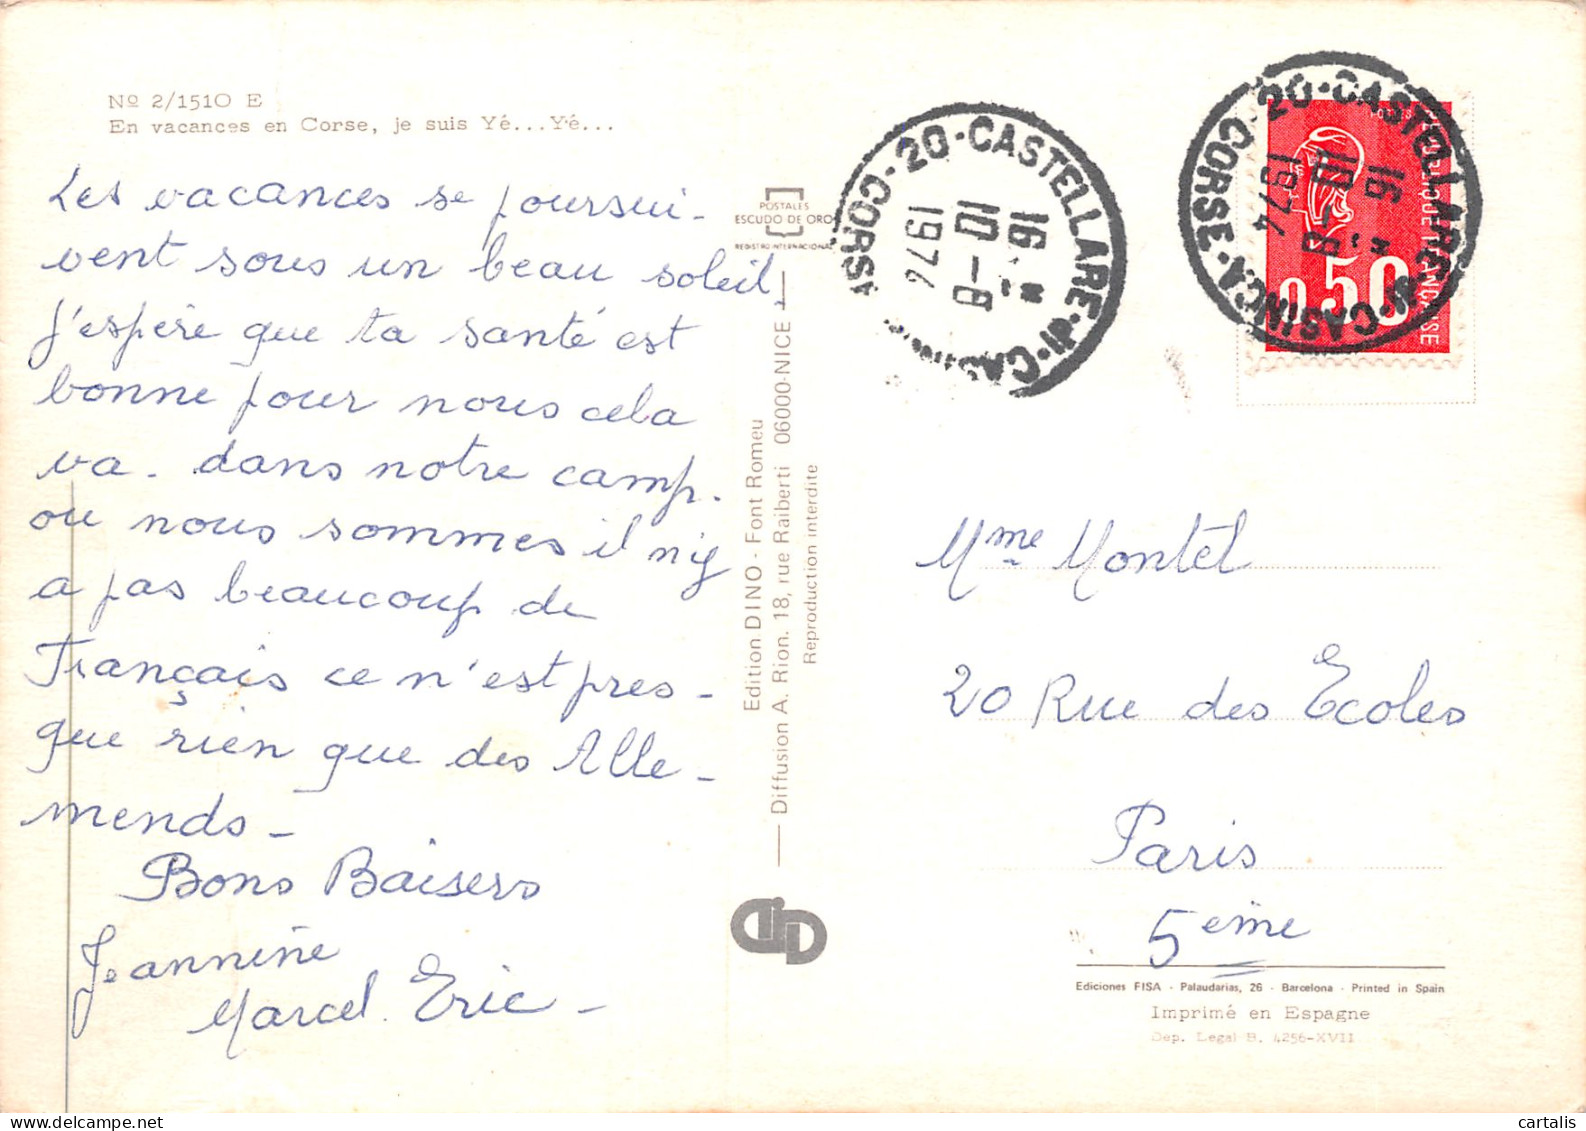 Nº 2/1510 E
En vacances en Corse, je suis Yé...Yé...
Les vacances se poursui-
vent sous un beau soleil,
j'espère que ta santé est
bonne pour nous cela
va. dans notre camp.
ou nous sommes il n'y
a pas beaucoup de
Français ce n'est pres-
que rien que des Alle-
mends -
Bons Baisers
Jeannine
Marcel. Eric -
POSTALES
ESCUDO DE ORO
REGISTRO INTERNACIONAL
Edition DINO - Font Romeu
Diffusion A. Rion. 18, rue Raiberti 06000-NICE
Reproduction interdite
20-CASTELLARE-DI-CAS
CORS
16
10-8
1974
20-CASTELLARE-DI-CASINCA-CORSE
16
10-8
1974
REPUBLIQUE FRANCAISE
POSTES
0,50
Mme Montel
20 Rue des Ecoles
Paris
5eme
Ediciones FISA - Palaudarias, 26 - Barcelona - Printed in Spain
Imprimé en Espagne
Dep. Legal B. 4256-XVII
cartalis